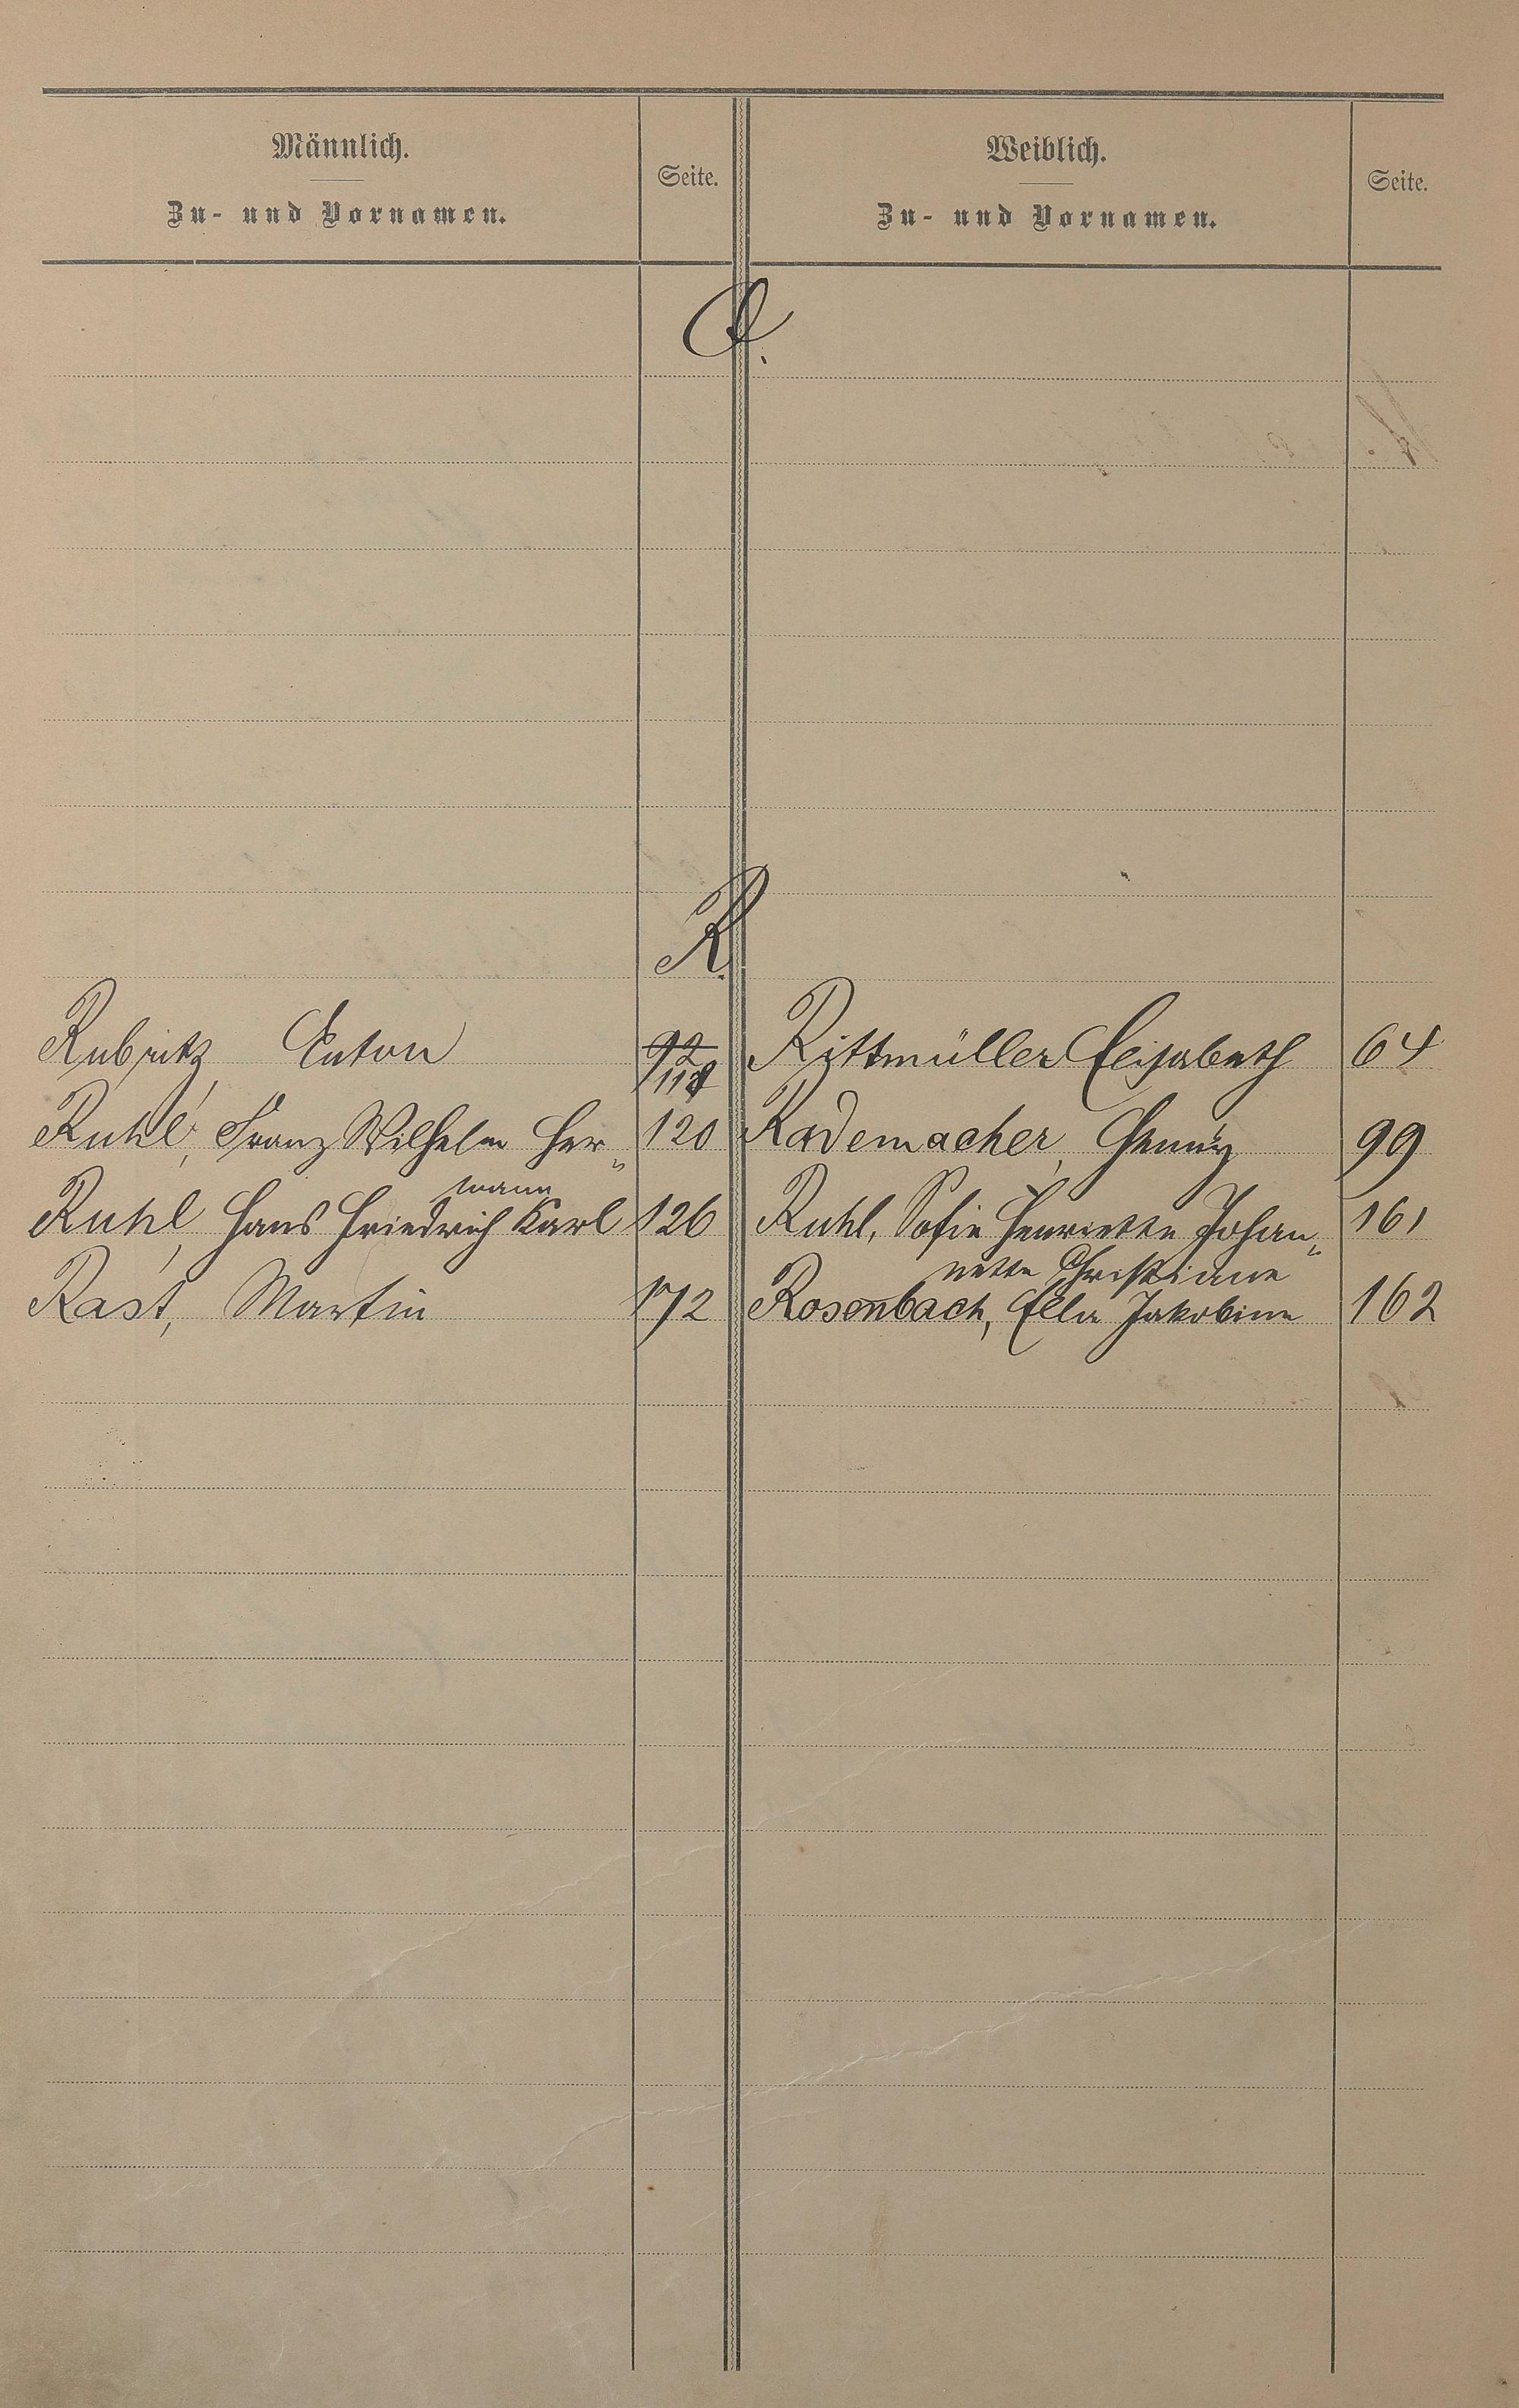 Männlich.
Zu- und Vornamen.
Seite.
Weiblich.
Zu- und Vornamen.
Seite.
Q.
R.
Rubritz Anton 92
118
Rittmüller Elisabeth 64
Ruhl, Franz Wilhelm Her„ 120
mann
Rademacher, 99
Ruhl, Hans Friedrich Karl 126
Ruhl, Sofie Henriette Johan„ 161
nette Christiane
Rast, Martin 172
Rosenbach, Ella Jakobine 162